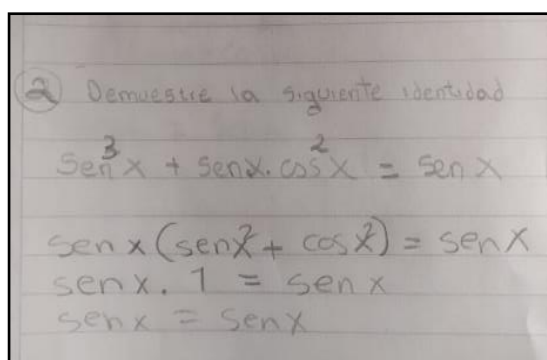 ② Demuestre la siguiente identidad
sen³x + senx.cos²x = senx
senx(senx² + cosx²) = senx
senx. 1 = senx
senx = senx